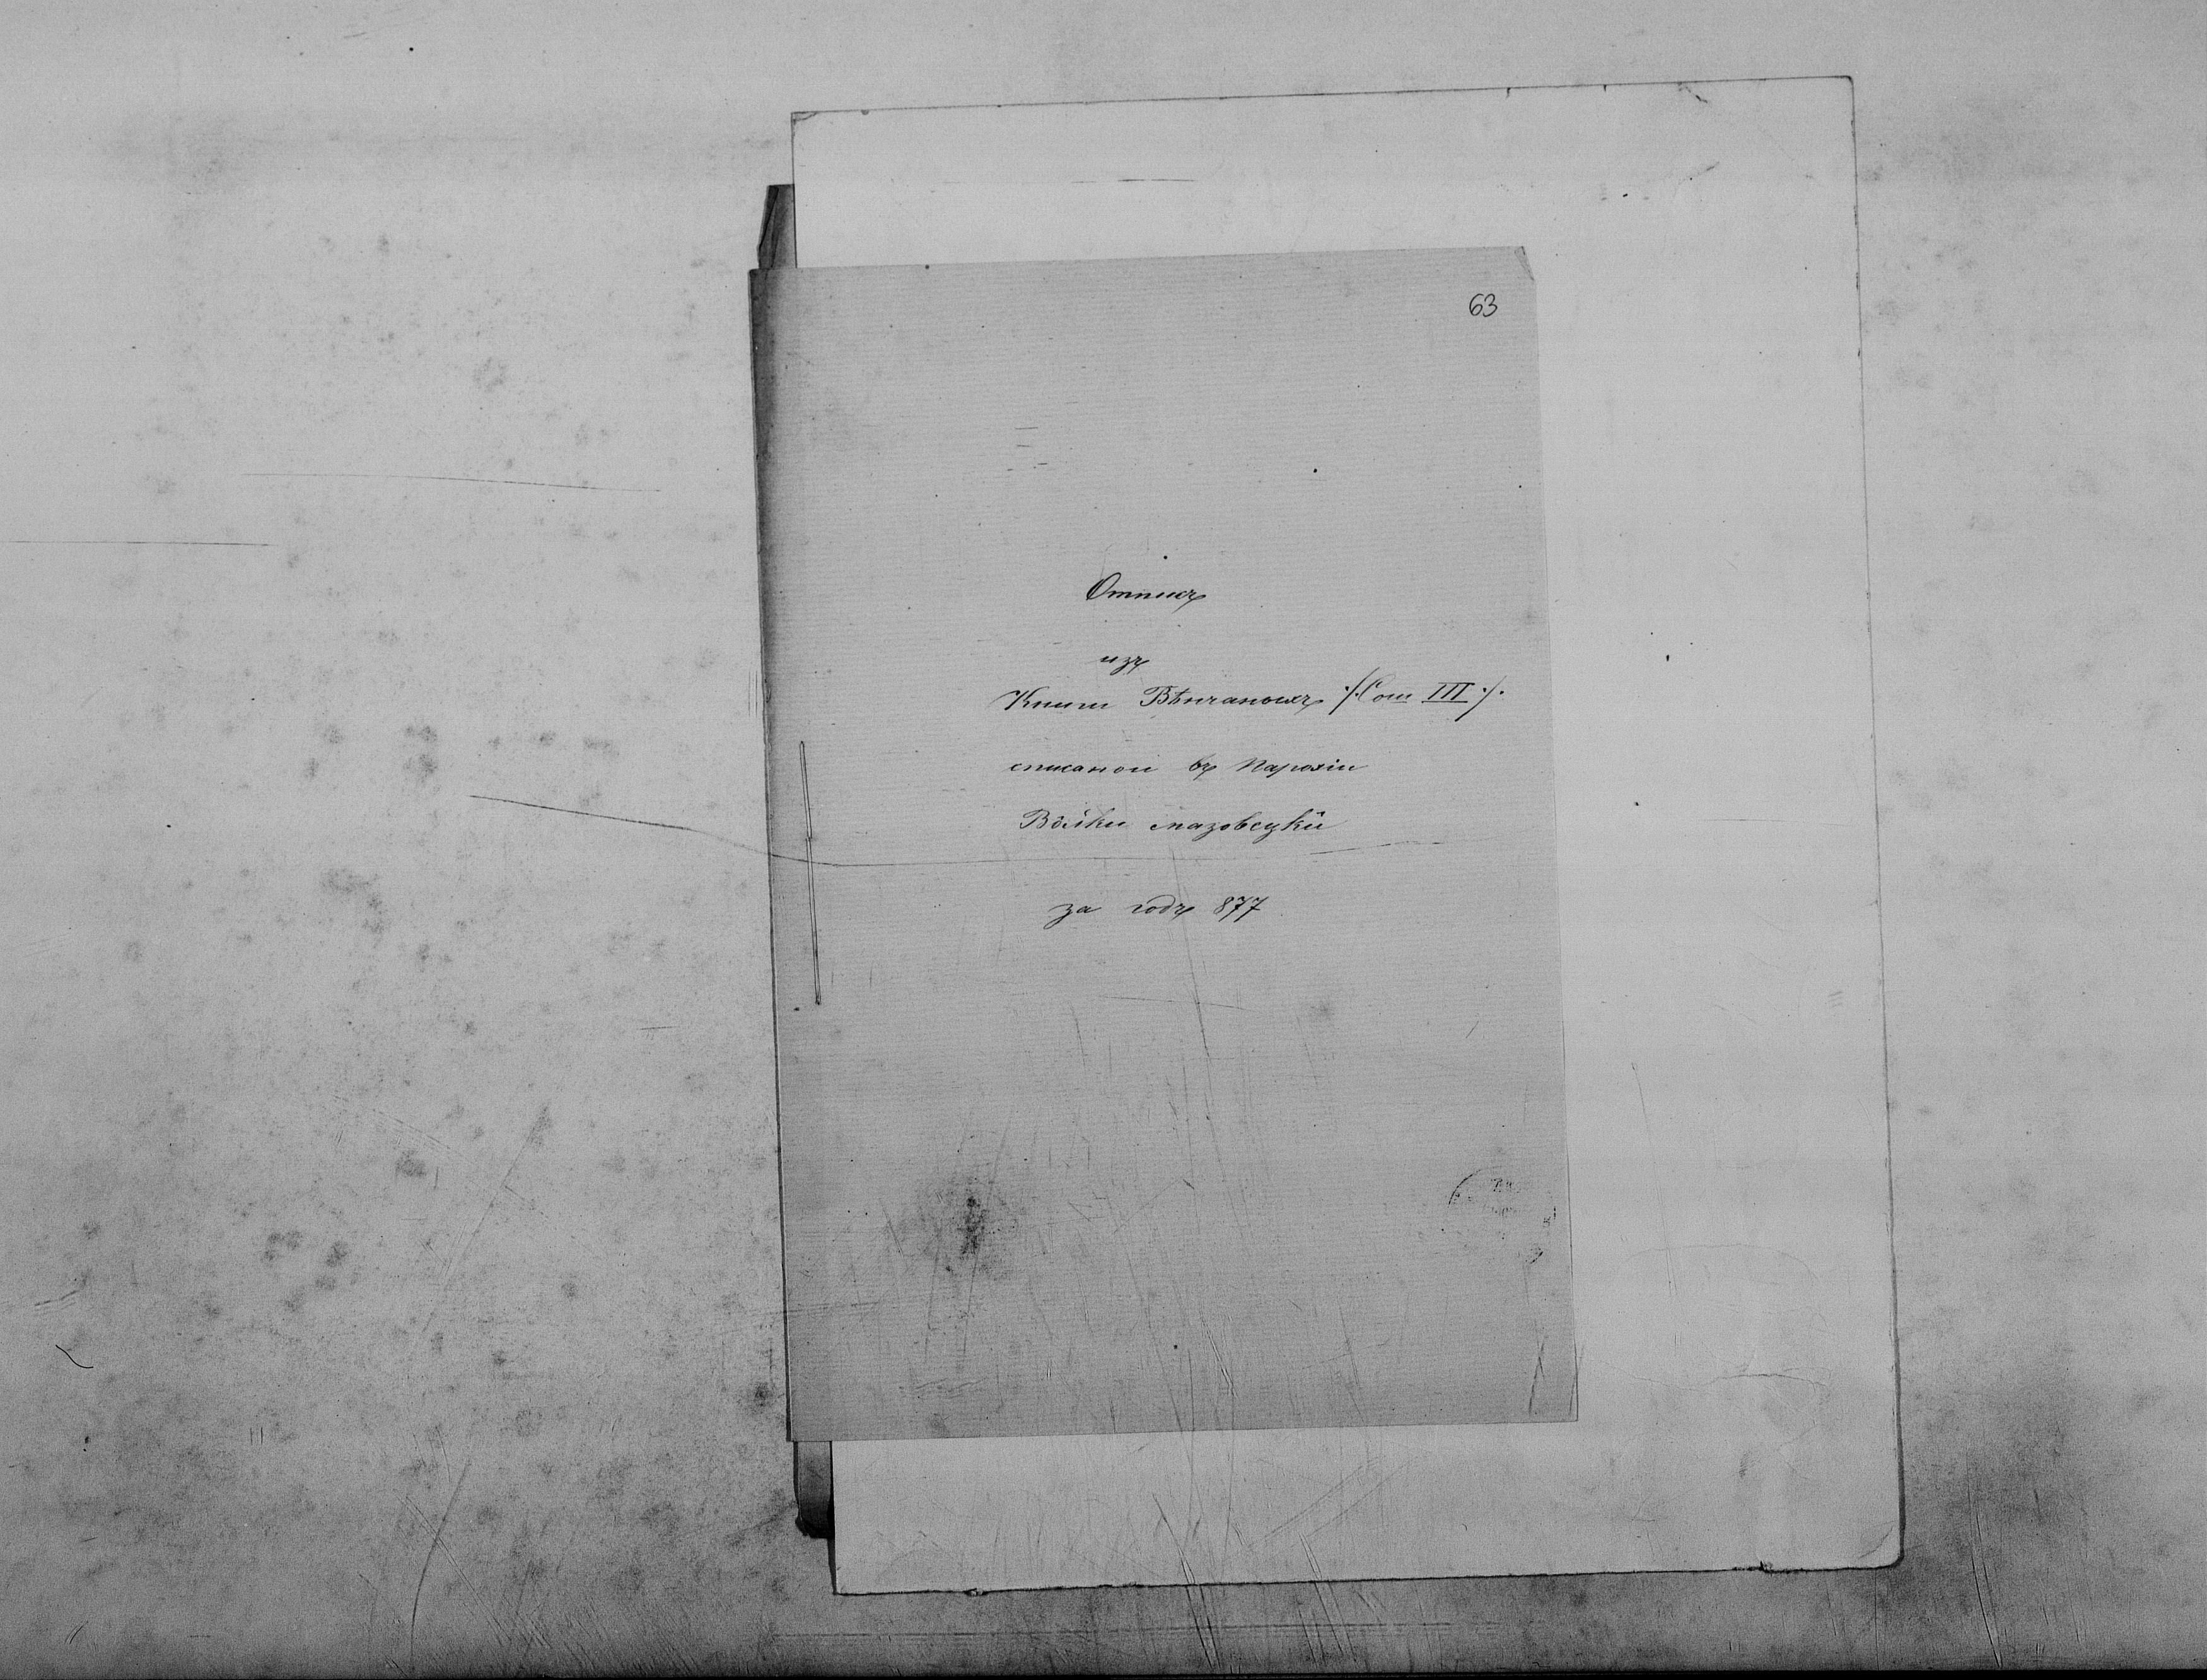 63
Отписъ
изъ
Книги Вѣнчаныхъ /.Том III./
списаной въ Парохіи
Войки мазовецкій
за годъ 877